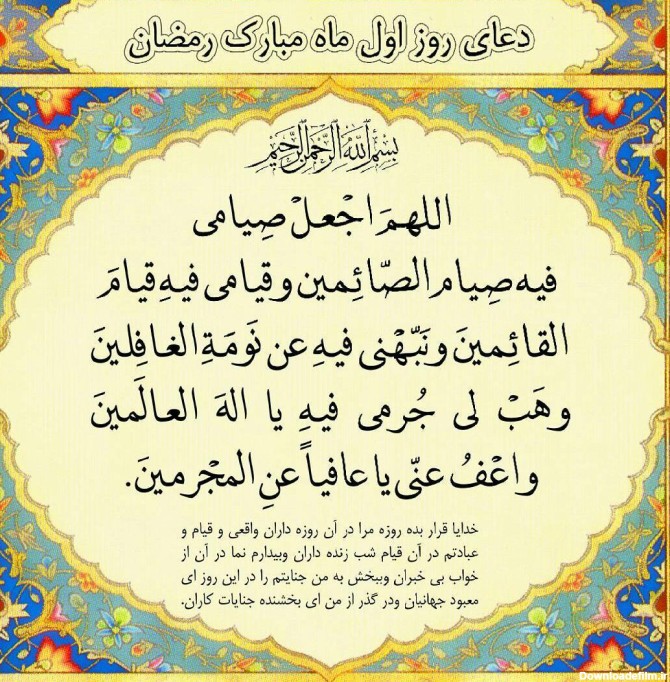 دعای روز اول ماه مبارک رمضان
بسم الله الرحمن الرحیم
اللهمَ اجْعلْ صِیامی
فیه صِیام الصّائِمین و قیامی فیهِ قیامَ
القائِمینَ ونَبّهْنی فیهِ عن نَومَةِ الغافِلینَ
وهَبْ لی جُرمی فیهِ یا الهَ العالَمینَ
واعْفُ عنّی یا عافیاً عنِ المجْرمینَ.
خدایا قرار بده روزه مرا در آن روزه داران واقعی و قیام و
عبادتم در آن قیام شب زنده داران وبیدارم نما در آن از
خواب بی خبران وببخش به من جنایتم را در این روز ای
معبود جهانیان ودر گذر از من ای بخشنده جنایات کاران.
Downloadefilm.ir